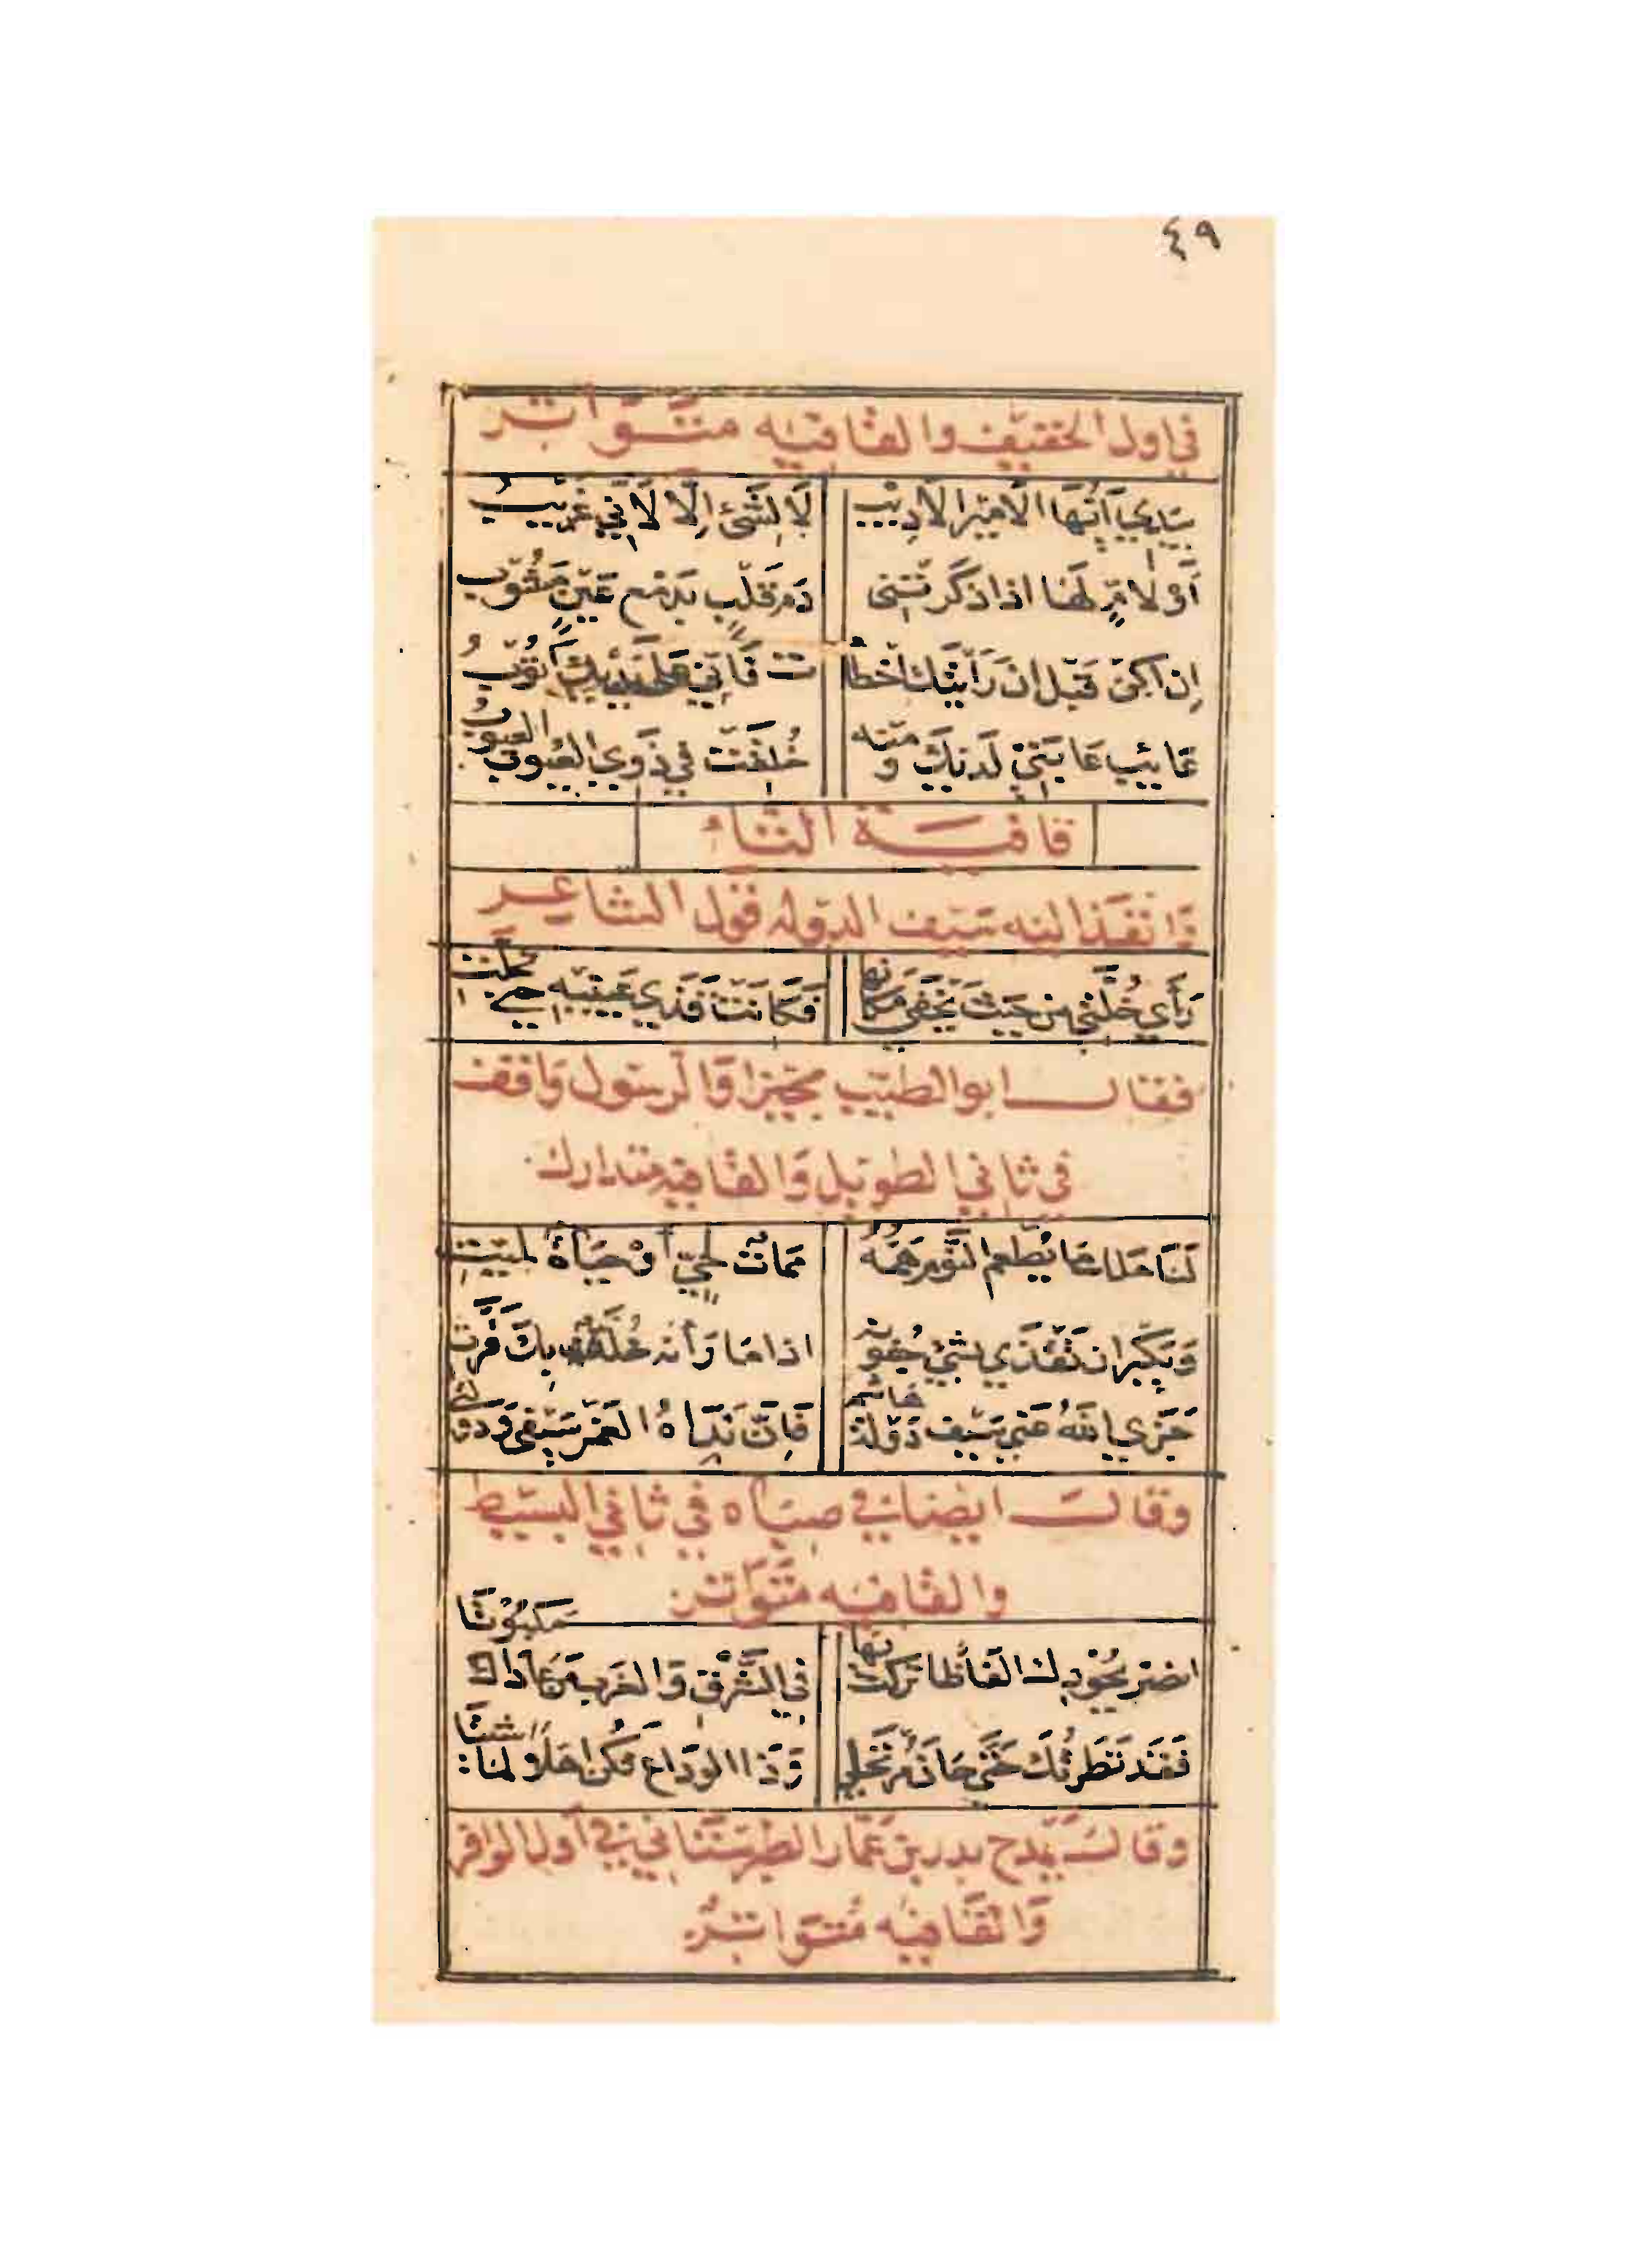 ٤٩
في اول الخفيف والقافيه متواتر
بيدي ايها الامير الاديب لا لشئ الا لاني غريب
او لام لها اذا ذكرتني دم قلب بدمع عين مشوب
ان اكن قبل ان رايتك اخطا ت فاني على يديك اتوب
عايب عابني لديك ومنه خلقت في ذوي العيوب العيوب
قافية التاء
وانفذ اليه سيف الدوله قول الشاعر
رأي خلتي من حيث يخفي مكانها فكانت قذي عينيه حتي تجلت
فقال ابو الطيب مجيزا والرسول واقف
في ثاني الطويل والقافيه متدارك
لنا ملك ما يطعم النوم همه ممات لحي او حياة لميت
ويكبر ان تقذي بشئ جفونه اذا ما رأته خلة بك فرت
جزي الله عني سيف دولة هاشم فان نداه الغمر سيفي ودولتي
وقال ايضا في صباه في ثاني البسيط
والقافيه متواتر
انصر بجودك الفاظا تركت بها في الشرق والغرب من عاداك مكبوتا
فقد نظرتك حتي حان مرتحلي وذا الوداع فكن اهلا لما شئتا
وقال يمدح بدر بن عمار الطبرستاني في اول الوافر
والقافيه متواتر